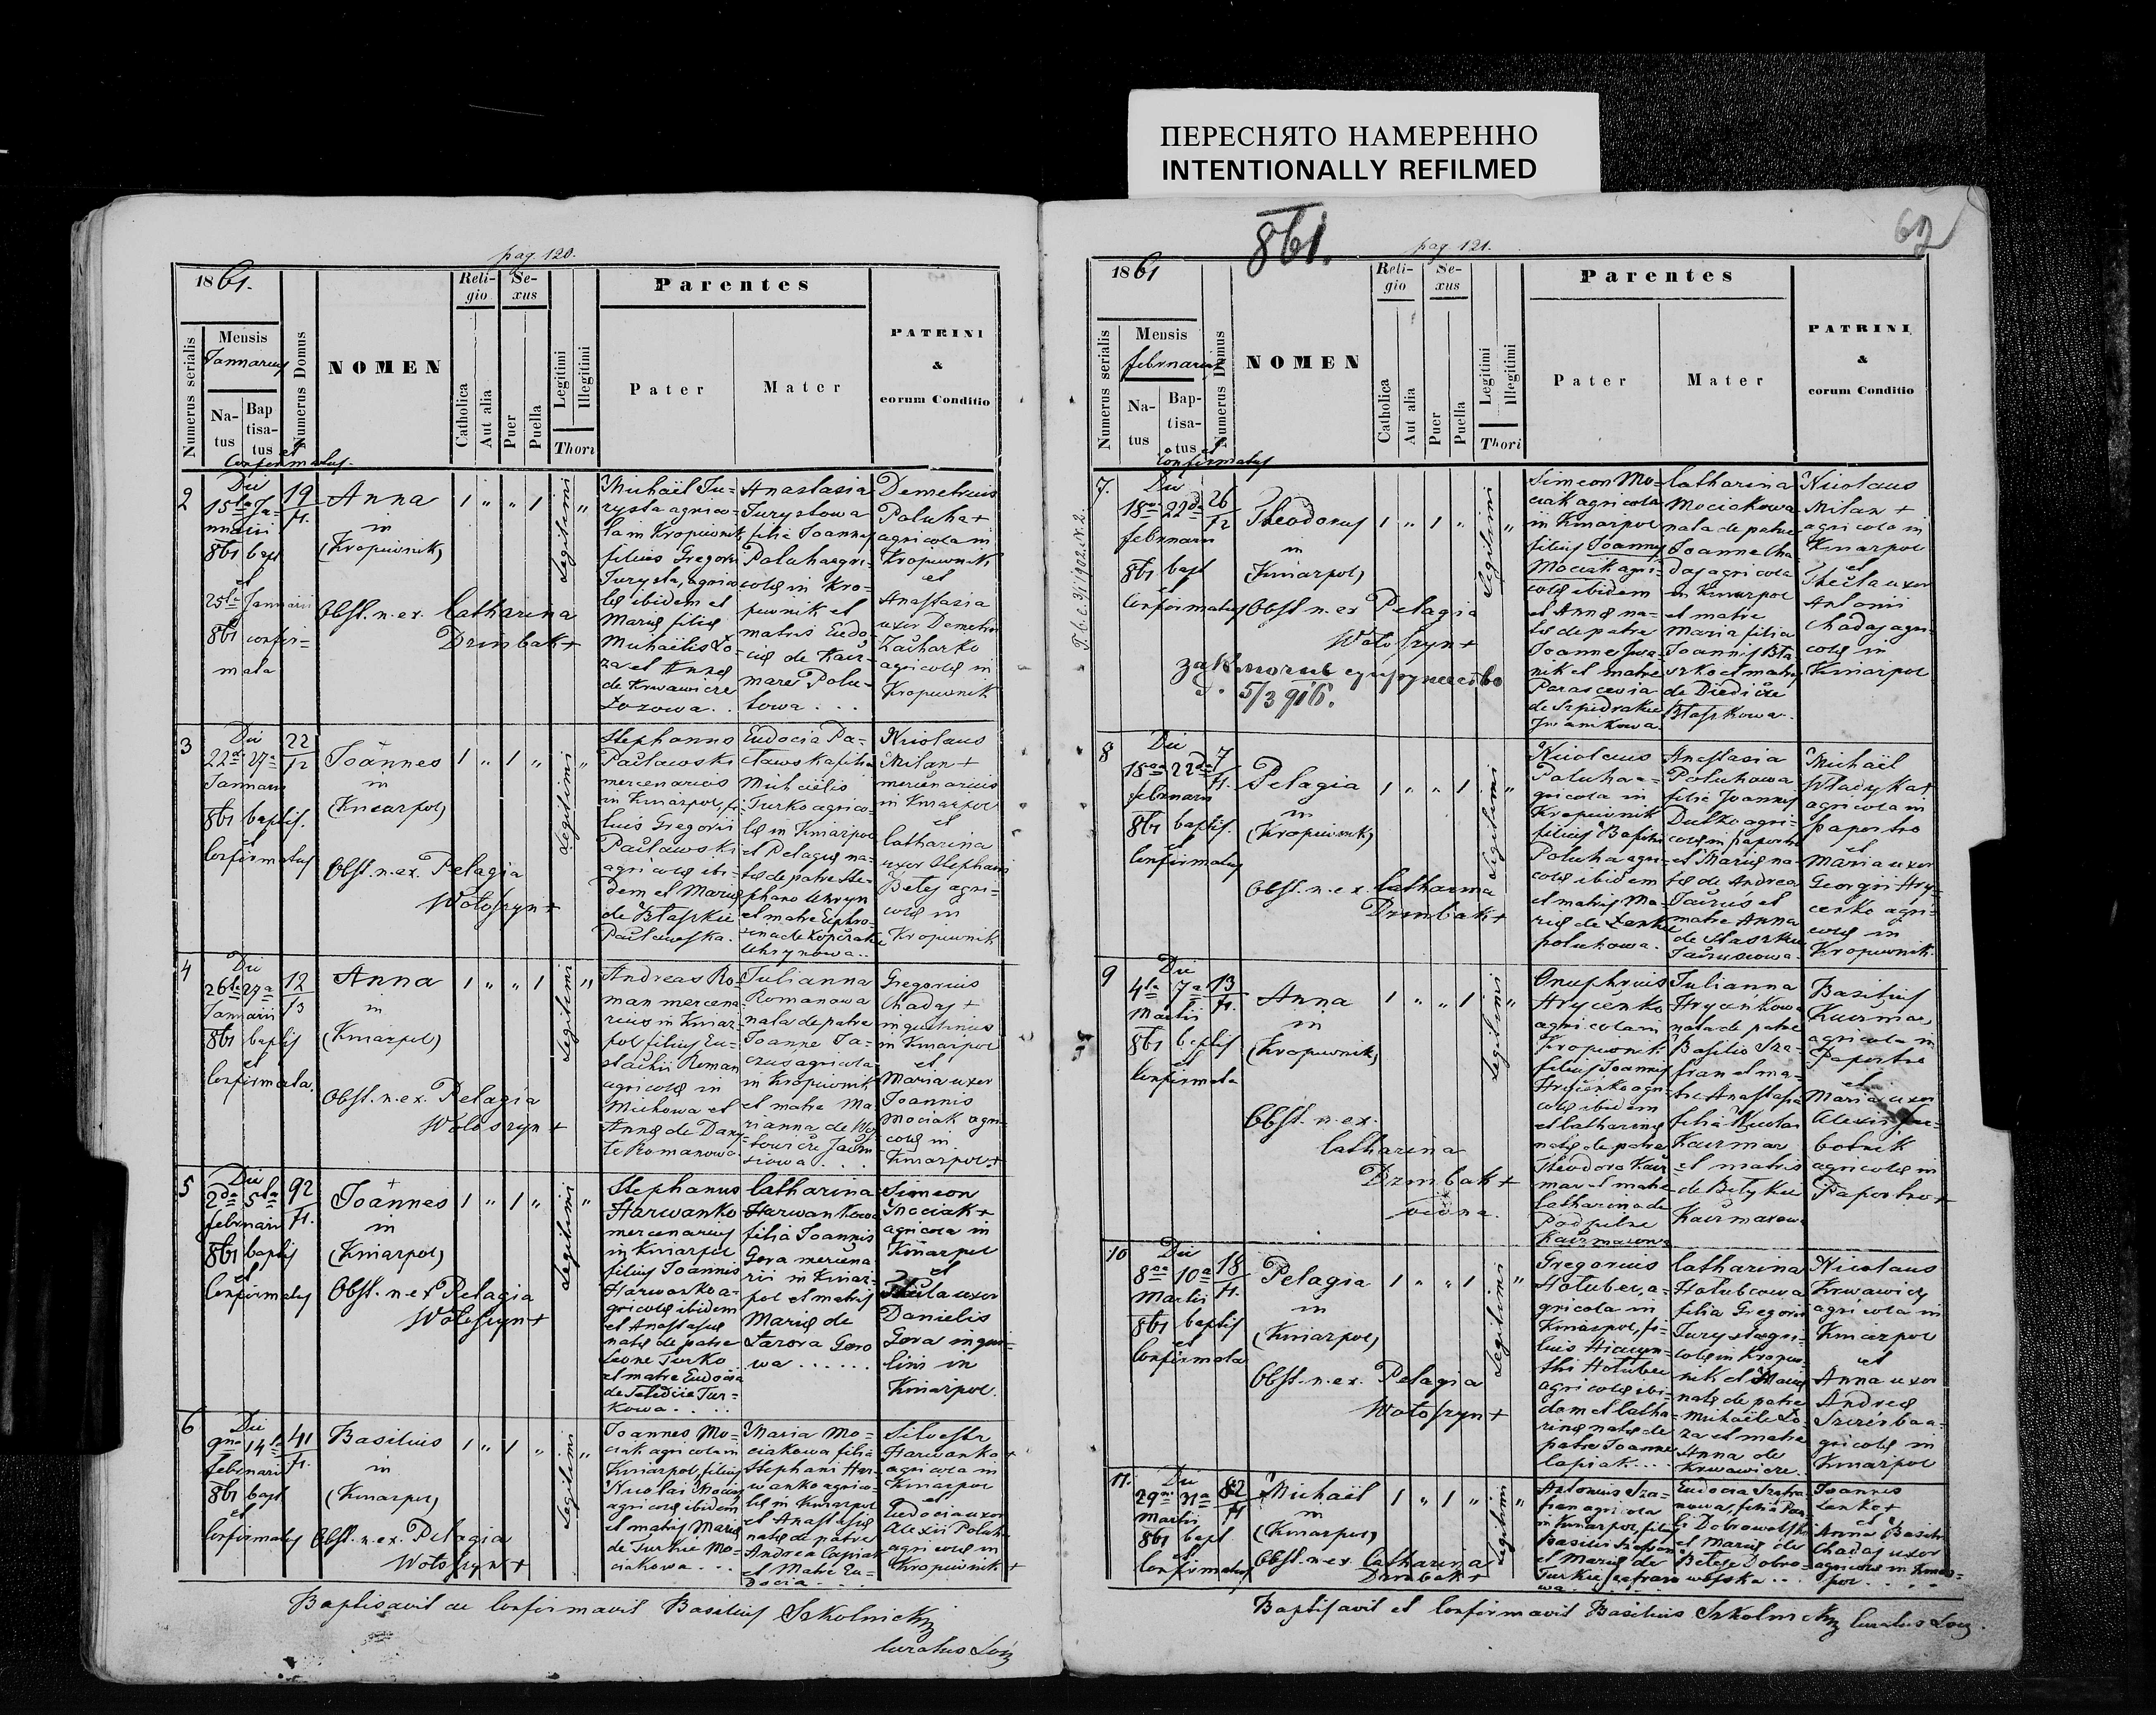 ПЕРЕСНЯТО НАМЕРЕННО
INTENTIONALLY REFILMED
pag. 120.
1861.
Numerus serialis
Mensis
Januarius
Natus
Baptisatus
et
Confirmatus.
Numerus Domus
NOMEN
Religio
Catholica
Aut alia
Sexus
Puer
Puella
Legitimi
Illegitimi
Thori
Parentes
Pater
Mater
PATRINI
&
eorum Conditio
2
Die
15ta Ja-
nuarii
861 bapt
et
25ta Januarii
861 confir-
mata
19
Anna
in
(Kropiwnik)
Obst. n. ex. Catharina
Drinbak +
1 " " 1
Legitimi
"
Michaël Tu-
rysta agrico-
la in Kropiwnik
filius Gregorii
Turysta, agrico
læ ibidem et
Mariæ filiæ
Michaëlis Lo-
za et Annæ
de Krwawicze
Lozowa . .
Anastasia
Turystowa
filia Joannis
Poluha agri-
colæ in Kro-
piwnik et
matris Eudo-
ciæ de Kacz-
mare Polu-
howa . . .
Demetrius
Poluha +
agricola in
Kropiwnik
et
Anastasia
uxor Demetrii
Zacharko
agricolæ in
Kropiwnik
3
Die
22da 27a
Januarii
861 baptis.
et
Confirmatus
22
Joannes
in
(Kniarpol)
Obst. n. ex. Pelagia
Wołoszyn +
1 " 1 "
Legitimi
"
Stephanus
Pacławski
mercenarius
in Kniarpol, fi-
lius Gregorii
Pacławski
agricolæ ibi-
dem et Mariæ
de Błaszkie
Pacławska.
Eudocia Pa-
cławska filia
Michaëlis
Turko agrico-
læ in Kniarpol
et Pelagiæ na-
tæ de patre Ste-
phano Uhryn
et matre Euphro-
sina de
Uhrynowa . .
Nicolaus
Milan +
mercenarius
in Kniarpol
et
Catharina
uxor Stephani
Beteg agri-
colæ in
Kropiwnik
4
Die
26ta 27a
Januarii
861 baptis
et
Confirmata.
12
13
Anna
in
(Kniarpol)
Obst. n. ex. Pelagia
Wołoszyn +
1 " " 1
Legitimi
"
Andreas Ro-
man mercena-
rius in Kniar-
pol filius Eu-
stachii Roman
agricolæ in
Michowa et
Annæ de
Romanowa
Julianna
Romanowa
nata de patre
Joanne Ja-
czus agricola
in Kropiwnik
et matre Ma-
rianna de
Gregorius
Chaday +
inquilinus
in Kniarpol
et
Maria uxor
Joannis
Mociak agri-
colæ in
Kniarpol +
5
Die
2da 5ta
februarii
861 baptis
et
Confirmatus
92
Joannes
in
(Kniarpol)
Obst. n. ex Pelagia
Wołoszyn +
1 " 1 "
Legitimi
"
Stephanus
Harwanko
mercenarius
in Kniarpol
filius Joannis
Harwanko a-
gricolæ ibidem
et Anastasiæ
natæ de patre
Leone Turko
et matre Eudocia
de Tur-
kowa . . .
Catharina
Harwankowa
filia Joannis
Gora mercena
rii in Kniar-
pol et matris
Mariæ de
Goro
wa . . . . . .
Simeon
Mociak +
agricola in
Kniarpol
et
uxor
Danielis
Gora inqui-
lini in
Kniarpol.
6
Die
9na 14ta
februarii
861 bapt
et
Confirmatus
41
Basilius
in
(Kniarpol)
Obst. n. ex. Pelagia
Wołoszyn +
1 " 1 "
Legitimi
"
Joannes Mo-
ciak agricola in
Kniarpol, filius
Nicolai Mociak
agricolæ ibidem
et matris Mariæ
de Turkie Mo-
ciakowa . . .
Maria Mo-
ciakowa filia
Stephani Har-
wanko agrico-
læ in Kniarpol
et Anastasiæ
natæ de patre
Andrea Capiak
et Matre Eu-
docia . . .
Silvester
Harwanko +
agricola in
Kniarpol
et
Eudocia uxor
Alexii Poluh
agricolæ in
Kropiwnik +
Baptisavit ac Confirmavit Basilius Szkolnicki
Curatus Loci
861.
pag. 121.
62
T. b. e. 3/1902. N. 2.
1861
Numerus serialis
Mensis
februarius
Natus
Baptisatus
et
Confirmatus
Numerus Domus
NOMEN
Religio
Catholica
Aut alia
Sexus
Puer
Puella
Legitimi
Illegitimi
Thori
Parentes
Pater
Mater
PATRINI
&
eorum Conditio
7.
Die
18va 22da
februarii
861 bapt
et
Confirmatus
26
Theodorus
in
(Kniarpol)
Obst. n. ex Pelagia
Wołoszyn +
5/3 916.
1 " 1 "
Legitimi
"
Simeon Mo-
ciak agricola
in Kniarpol
filius Joannis
Mociak agri-
colæ ibidem
et Annæ na-
tæ de patre
Joanne Iwa-
nik et matre
Parascevia
de Szpidrakie
Iwanikowa.
Catharina
Mociakowa
nata de patre
Joanne Cha-
day agricola
in Kniarpol
et matre
Maria filia
Joannis Bła-
szko et matre
de Diedicze
Błaszkowa.
Nicolaus
Milan +
agricola in
Kniarpol
et
Thecla uxor
Antonii
Chaday agri-
colæ in
Kniarpol
8
Die
18va 22da
februarii
861 baptis.
et
Confirmatus
7
Pelagia
in
(Kropiwnik)
Obst. n. ex. Catharina
Drinbak +
1 " " 1
Legitimi
"
Nicolaus
Poluha a-
gricola in
Kropiwnik
filius Basilii
Poluha agri-
colæ ibidem
et matris Ma-
riæ de
Poluhowa.
Anastasia
Poluhowa
filia Joannis
Dutko agri-
colæ in Paportno
et Mariæ na-
tæ de Andrea
Jaczus et
matre Anna
de Staszkie
Jaczusiowa.
Michaël
Władyka +
agricola in
Paportno
et
Maria uxor
Georgii Hry-
cenko agri-
colæ in
Kropiwnik.
9
Die
4ta 7a
Martii
861 baptis
et
Confirmata
13
Anna
in
(Kropiwnik)
Obst. n. ex.
Catharina
Drinbak +
1 " " 1
Legitimi
"
Onuphrius
Hrycenko
agricola in
Kropiwnik
filius Joannis
Hrycenko agri-
colæ ibidem
et Catharinæ
natæ de patre
Theodoro Kacz-
mar et matre
Catharina de
Kaczmarowa
Julianna
Hrycenkowa
nata de patre
Basilio Sza-
fran et ma-
tre Anastasia
filia Nicolai
Kaczmar
et matris
de Betykie
Kaczmarowa
Basilius
Kaczmar,
agricola in
Paportno
et
Maria uxor
Alexii
agricolæ in
Paportno +
10
Die
8va 10a
Martii
861 baptis
et
Confirmata
18
Pelagia
in
(Kniarpol)
Obst. n. ex. Pelagia
Wołoszyn +
1 " " 1
Legitimi
"
Gregorius
Hołubec, a-
gricola in
Kniarpol, fi-
lius Hiacyn-
thi Hołubec
agricolæ ibi-
dem et Catha-
rinæ natæ de
patre Joanne
Capiak . . .
Catharina
Hołubcowa
filia Gregorii
Turysta agri-
colæ in Kropiw-
nik et Mariæ
natæ de patre
Michaële Lo-
za et matre
Anna de
Krwawicze.
Nicolaus
Krwawicz
agricola in
Kniarpol
et
Anna uxor
Andreæ
Szczerba a-
gricolæ in
Kniarpol
11.
Die
29na 31a
Martii
861 bapt.
et
Confirmatus
82
Michaël
in
(Kniarpol)
Obst. n. ex Catharina
Drinbak +
1 " 1 "
Legitimi
"
Antonius Sza-
fran agricola
in Kniarpol, filius
Basilii Szafran
et Mariæ de
Turkie Szafrano
wa . . . .
Eudocia Szafra-
nowa, filia Pau-
li Dobrowolski
et Mariæ de
Betege Dobro-
wolska . . .
Joannes
Lenko +
et
Anna Basilii
Chaday uxor
agricolæ in Kniar-
pol . . .
Baptisavit et Confirmavit Basilius Szkolnicki Curatus Loci.